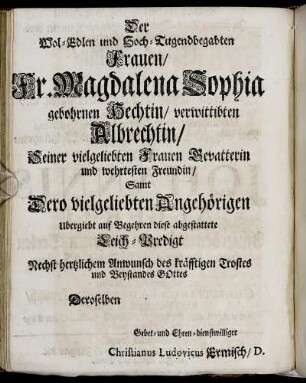 Der
Wol-Edlen und Hoch-Tugendbegabten
Frauen/
Fr. Magdalena Sophia
gebohrnen Hechtin/ verwittibten
Albrechtin/
Seiner vielgeliebten Frauen Gevatterin
und wehrtesten Freundin/
Samt
Dero vielgeliebten Angehörigen
Ubergiebt auf Begehren diese abgestattete
Leich-Predigt
Nechst hertzlichem Anwunsch des kräfftigen Trostes
und Beystandes GOttes
Deroselben
Gebet- und Ehren-dienstwilliger
Christianus Ludovicus Ermisch/ D.